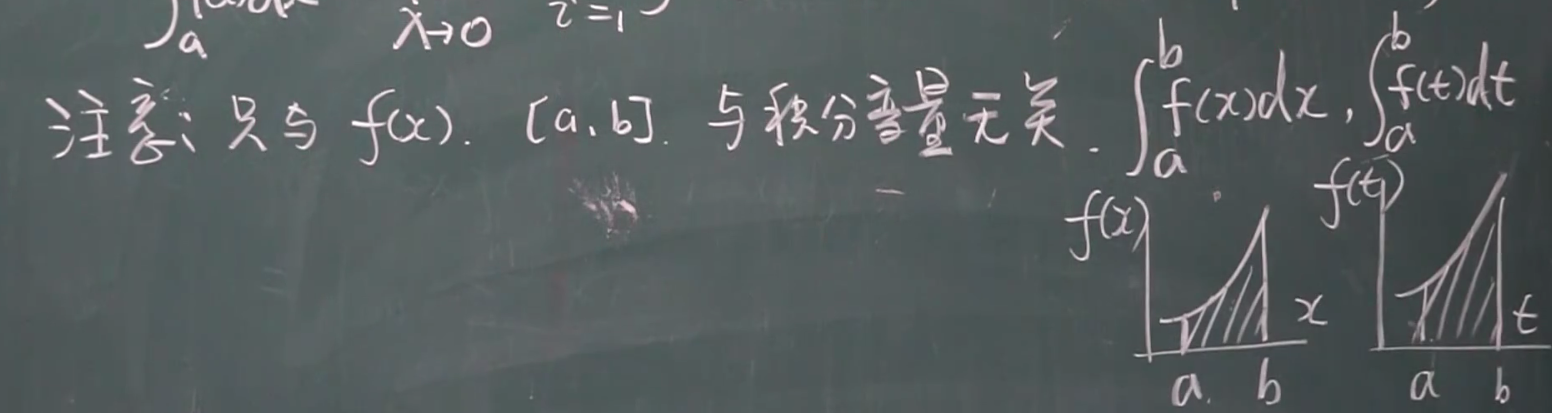 ∫a λ→0 i=1
注意: 只与 f(x). [a,b]. 与积分变量无关. ∫_a^b f(x)dx, ∫_a^b f(t)dt
f(x) x a b
f(t) t a b